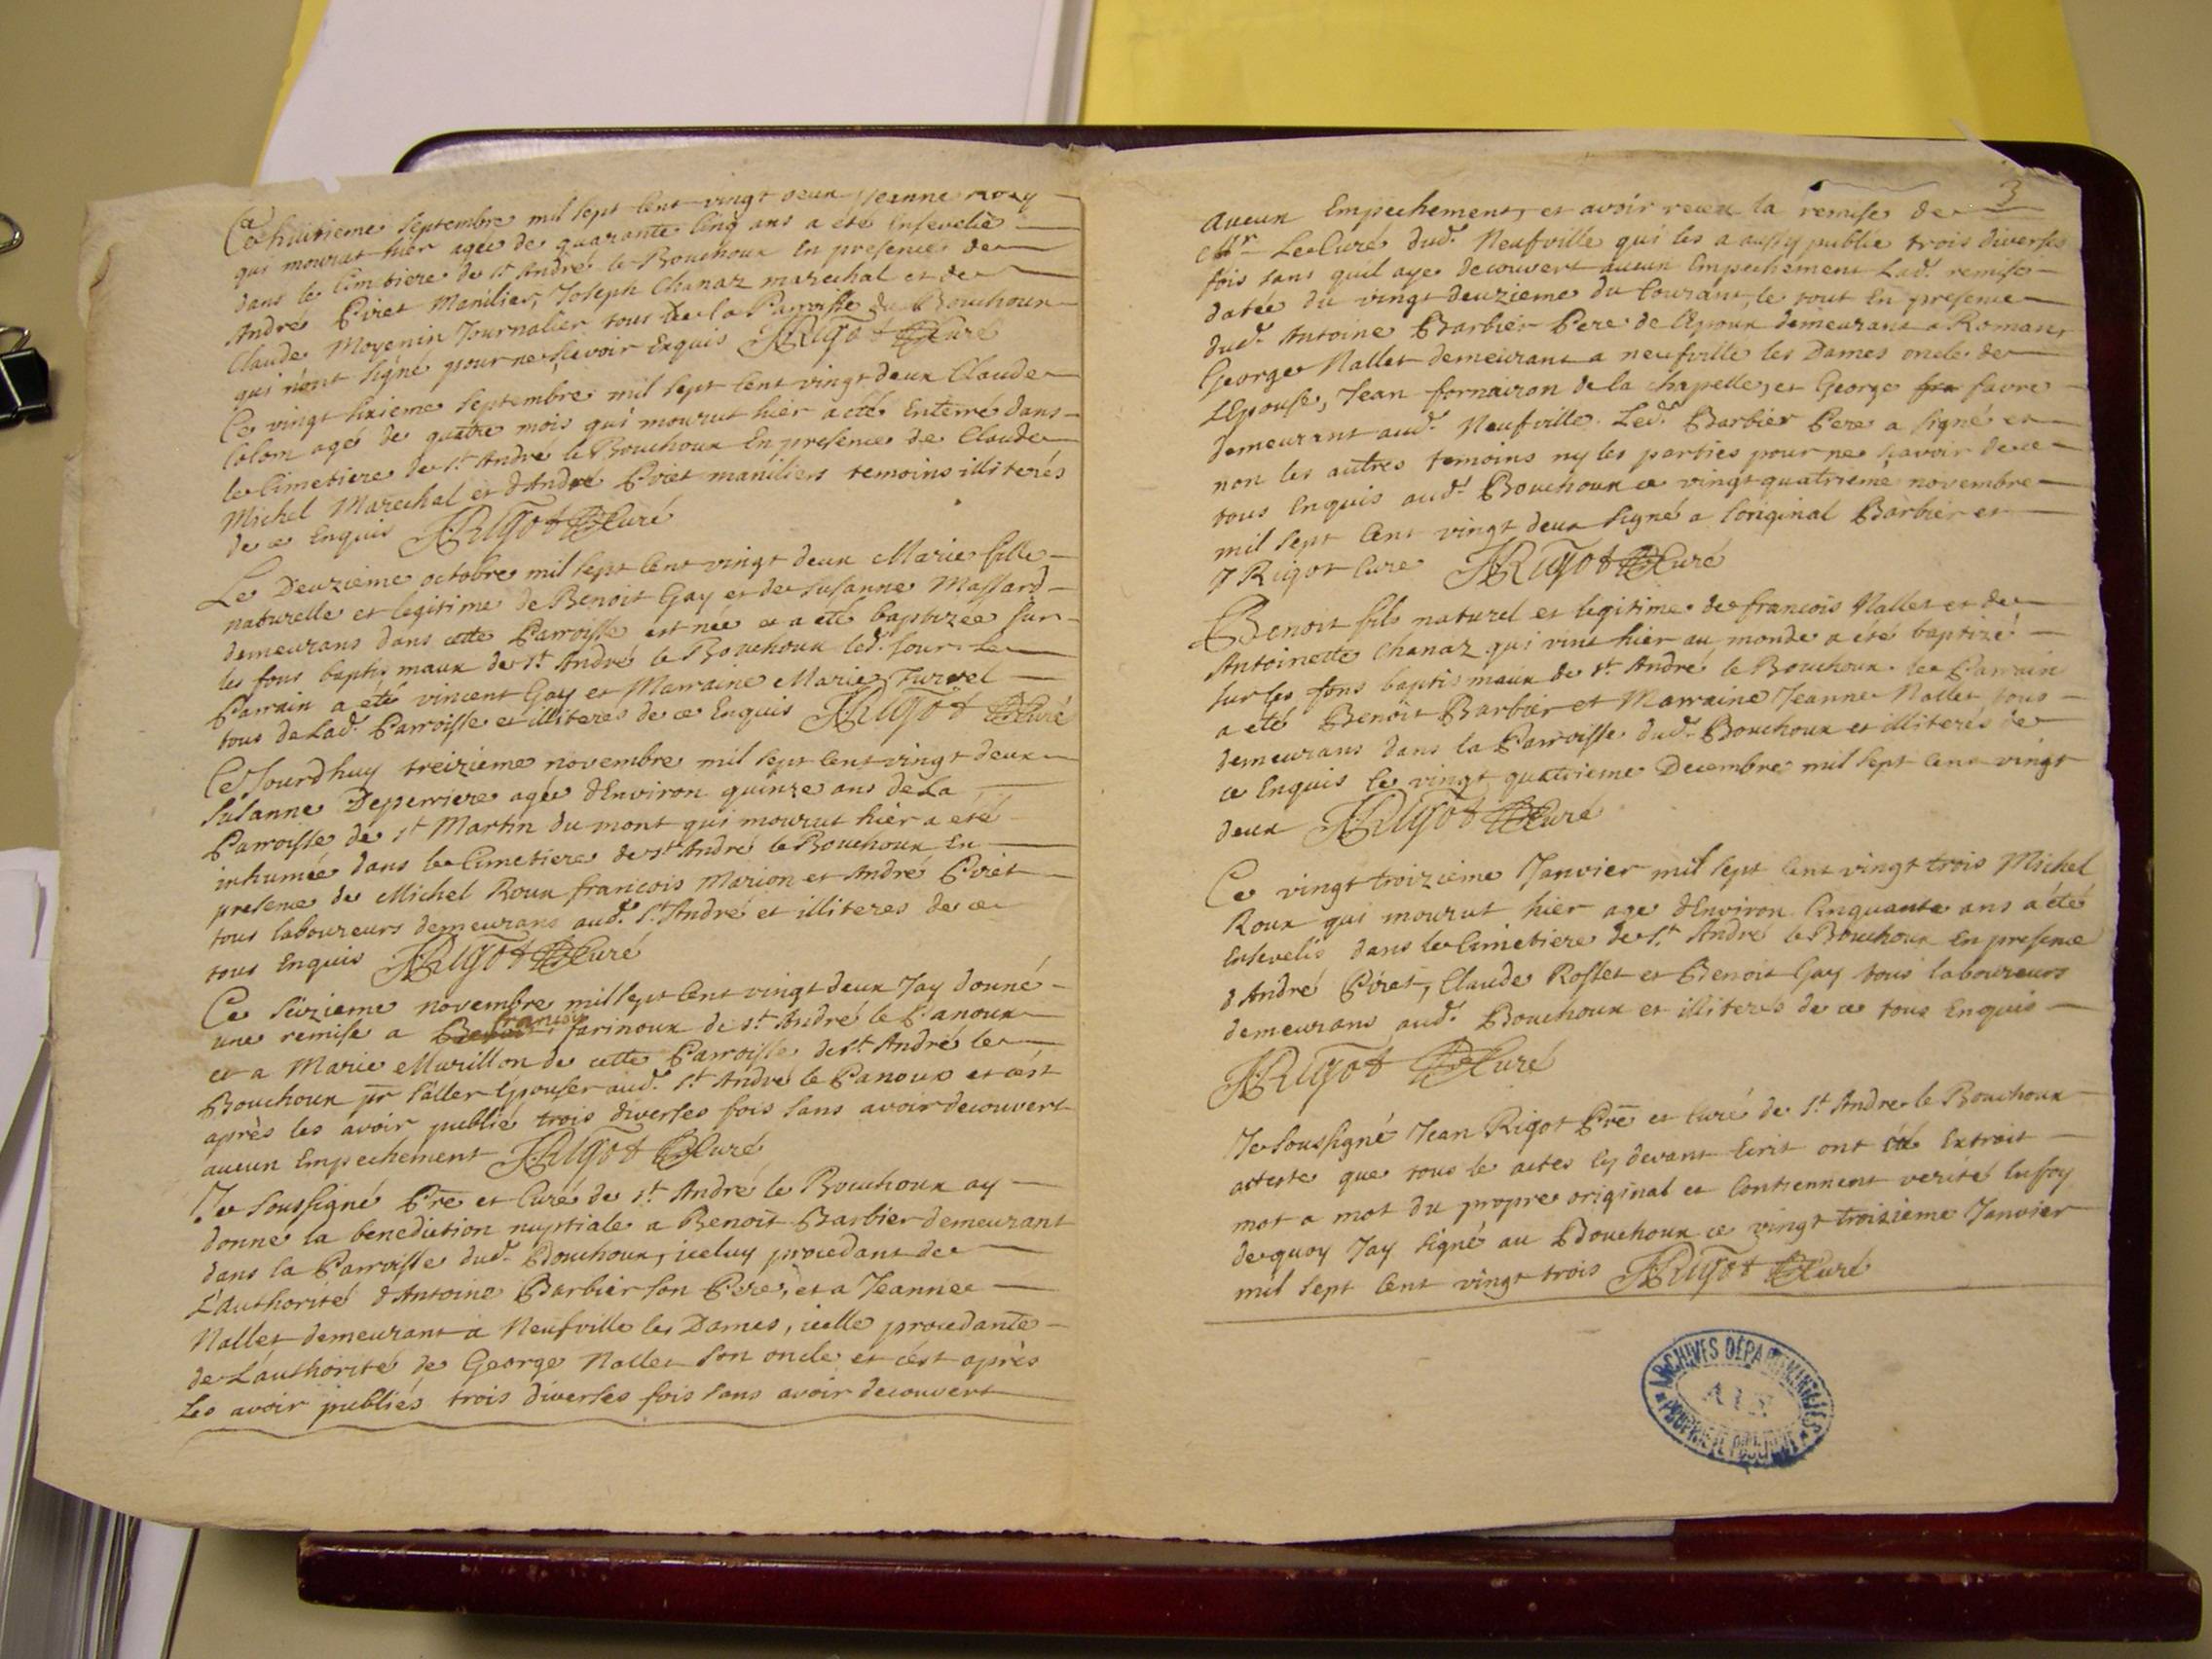 Ce huitieme septembre mil sept cent vingt deux Jeanne
qui mourut hier ageé de quarante cinq ans a été ensevelie
dans le Cimtiere de st André le Bouchoux En presence de
André Piret Manilier, Joseph Chanaz marechal et de
Claude Moyenin Journalier tous de la Parroisse du Bouchoux
qui n'ont signé pour ne scavoir Enquis JRigot Curé
Ce vingt sixieme septembre mil sept cent vingt deux Claude
Colom agé de quatre mois qui mourut hier a été Enterré dans
le Cimetiere de st. André le Bouchoux En presence de Claude
Michel Marechal et d'André Piret maniliers temoins illiterés
de ce Enquis JRigot Curé
Le Deuzieme octobre mil sept cent vingt deux Marie fille
naturelle et legitime de Benoit Gay et de Susanne Massard
demeurans dans cette Parroisse est née et a été baptizée sur
les fons baptismaux de st. André le Bouchoux led. jour. Le
Parrain a eté vincent Gay et Marraine Marie Turrel
tous de Lad. Parroisse et illiterés de ce Enquis JRigot Curé
Ce Jourdhuy treizieme novembre mil sept cent vingt deux
Susanne Deperriere agée d'Environ quinze ans de La
Parroisse de st Martin du mont qui mourut hier a eté
inhumée dans le Cimetiere de st André le Bouchoux En
presence de Michel Roux francois Marion et André Piret
tous laboureurs demeurans aud. st. André et illiteres de ce
tous Enquis JRigot Curé
Ce seizieme novembre mil sept cent vingt deux Jay donné
une remise a Benoit francois farinoux de st. André le Panoux
et a Marie Murillon de cette Parroisse de st André le
Bouchoux pr s'aller Epouser aud. st. André le Panoux et c'est
après les avoir publié trois diverses fois sans avoir decouvert
aucun Empechement JRigot Curé
Je soussigné Pre et Curé de st. André le Bouchoux ay
donné la benediction nuptiale a Benoit Barbier demeurant
dans la Parroisse dud. Bouchoux, iceluy procedant de
L'authorité d'Antoine Barbier son Pere, et a Jeanne
Nallet demeurant a Neufville les Dames, icelle procedante
de L'authorité de George Nallet son oncle et c'est après
Les avoir publiés trois diverses fois sans avoir decouvert
3
aucun Empechement, et avoir receu la remise de
Mr Le Curé dud. Neufville qui les a aussy publié trois diverses
fois sans quil aye decouvert aucun Empechement Lad. remise
datée du vingt deuzieme du Courant, le tout En presence
dud. Antoine Barbier Pere de l'Epoux demeurant a Romans,
George Nallet demeurant a neufville les Dames oncle de
L'Epouse, Jean fornairon de la chapelle, et George fra favre
demeurant aud. Neufville. Led. Barbier Pere a signé et
non les autres temoins ny les parties pour ne scavoir de ce
tous Enquis aud. Bouchoux ce vingt quatrieme novembre
mil sept cent vingt deux signé a l'original Barbier et
J Rigot Cure JRigot Curé
Benoit fils naturel et legitime de francois Nallet et de
Antoinette Chanaz qui vint hier au monde a été baptizé
sur les fons baptismaux de st. André le Bouchoux. le Parrain
a eté Benoit Barbier et Marraine Jeanne Nallet tous
demeurans dans la Parroisse dud. Bouchoux et illiterés de
ce Enquis le vingt quatrieme Decembre mil sept cent vingt
deux JRigot Curé
Ce vingt troizieme Janvier mil sept cent vingt trois Michel
Roux qui mourut hier age d'Environ Cinquante ans a été
Enseveli dans le Cimetiere de st. André le Bouchoux En presence
d'André Piret, Claude Rosset et Benoit Gay tous laboureurs
demeurans aud. Bouchoux et illiterés de ce tous Enquis
JRigot Curé
Je soussigné Jean Rigot Pre et Curé de st. Andre le Bouchoux
atteste que tous le actes Cy devant Ecrit ont eté Extrait
mot a mot du propre original et Contiennent verité En foy
de quoy Jay signé au Bouchoux ce vingt troizieme Janvier
mil sept cent vingt trois JRigot Curé
ARCHIVES DÉPARTEMENTALES
AIN
PROPRIÉTÉ PUBLIQUE